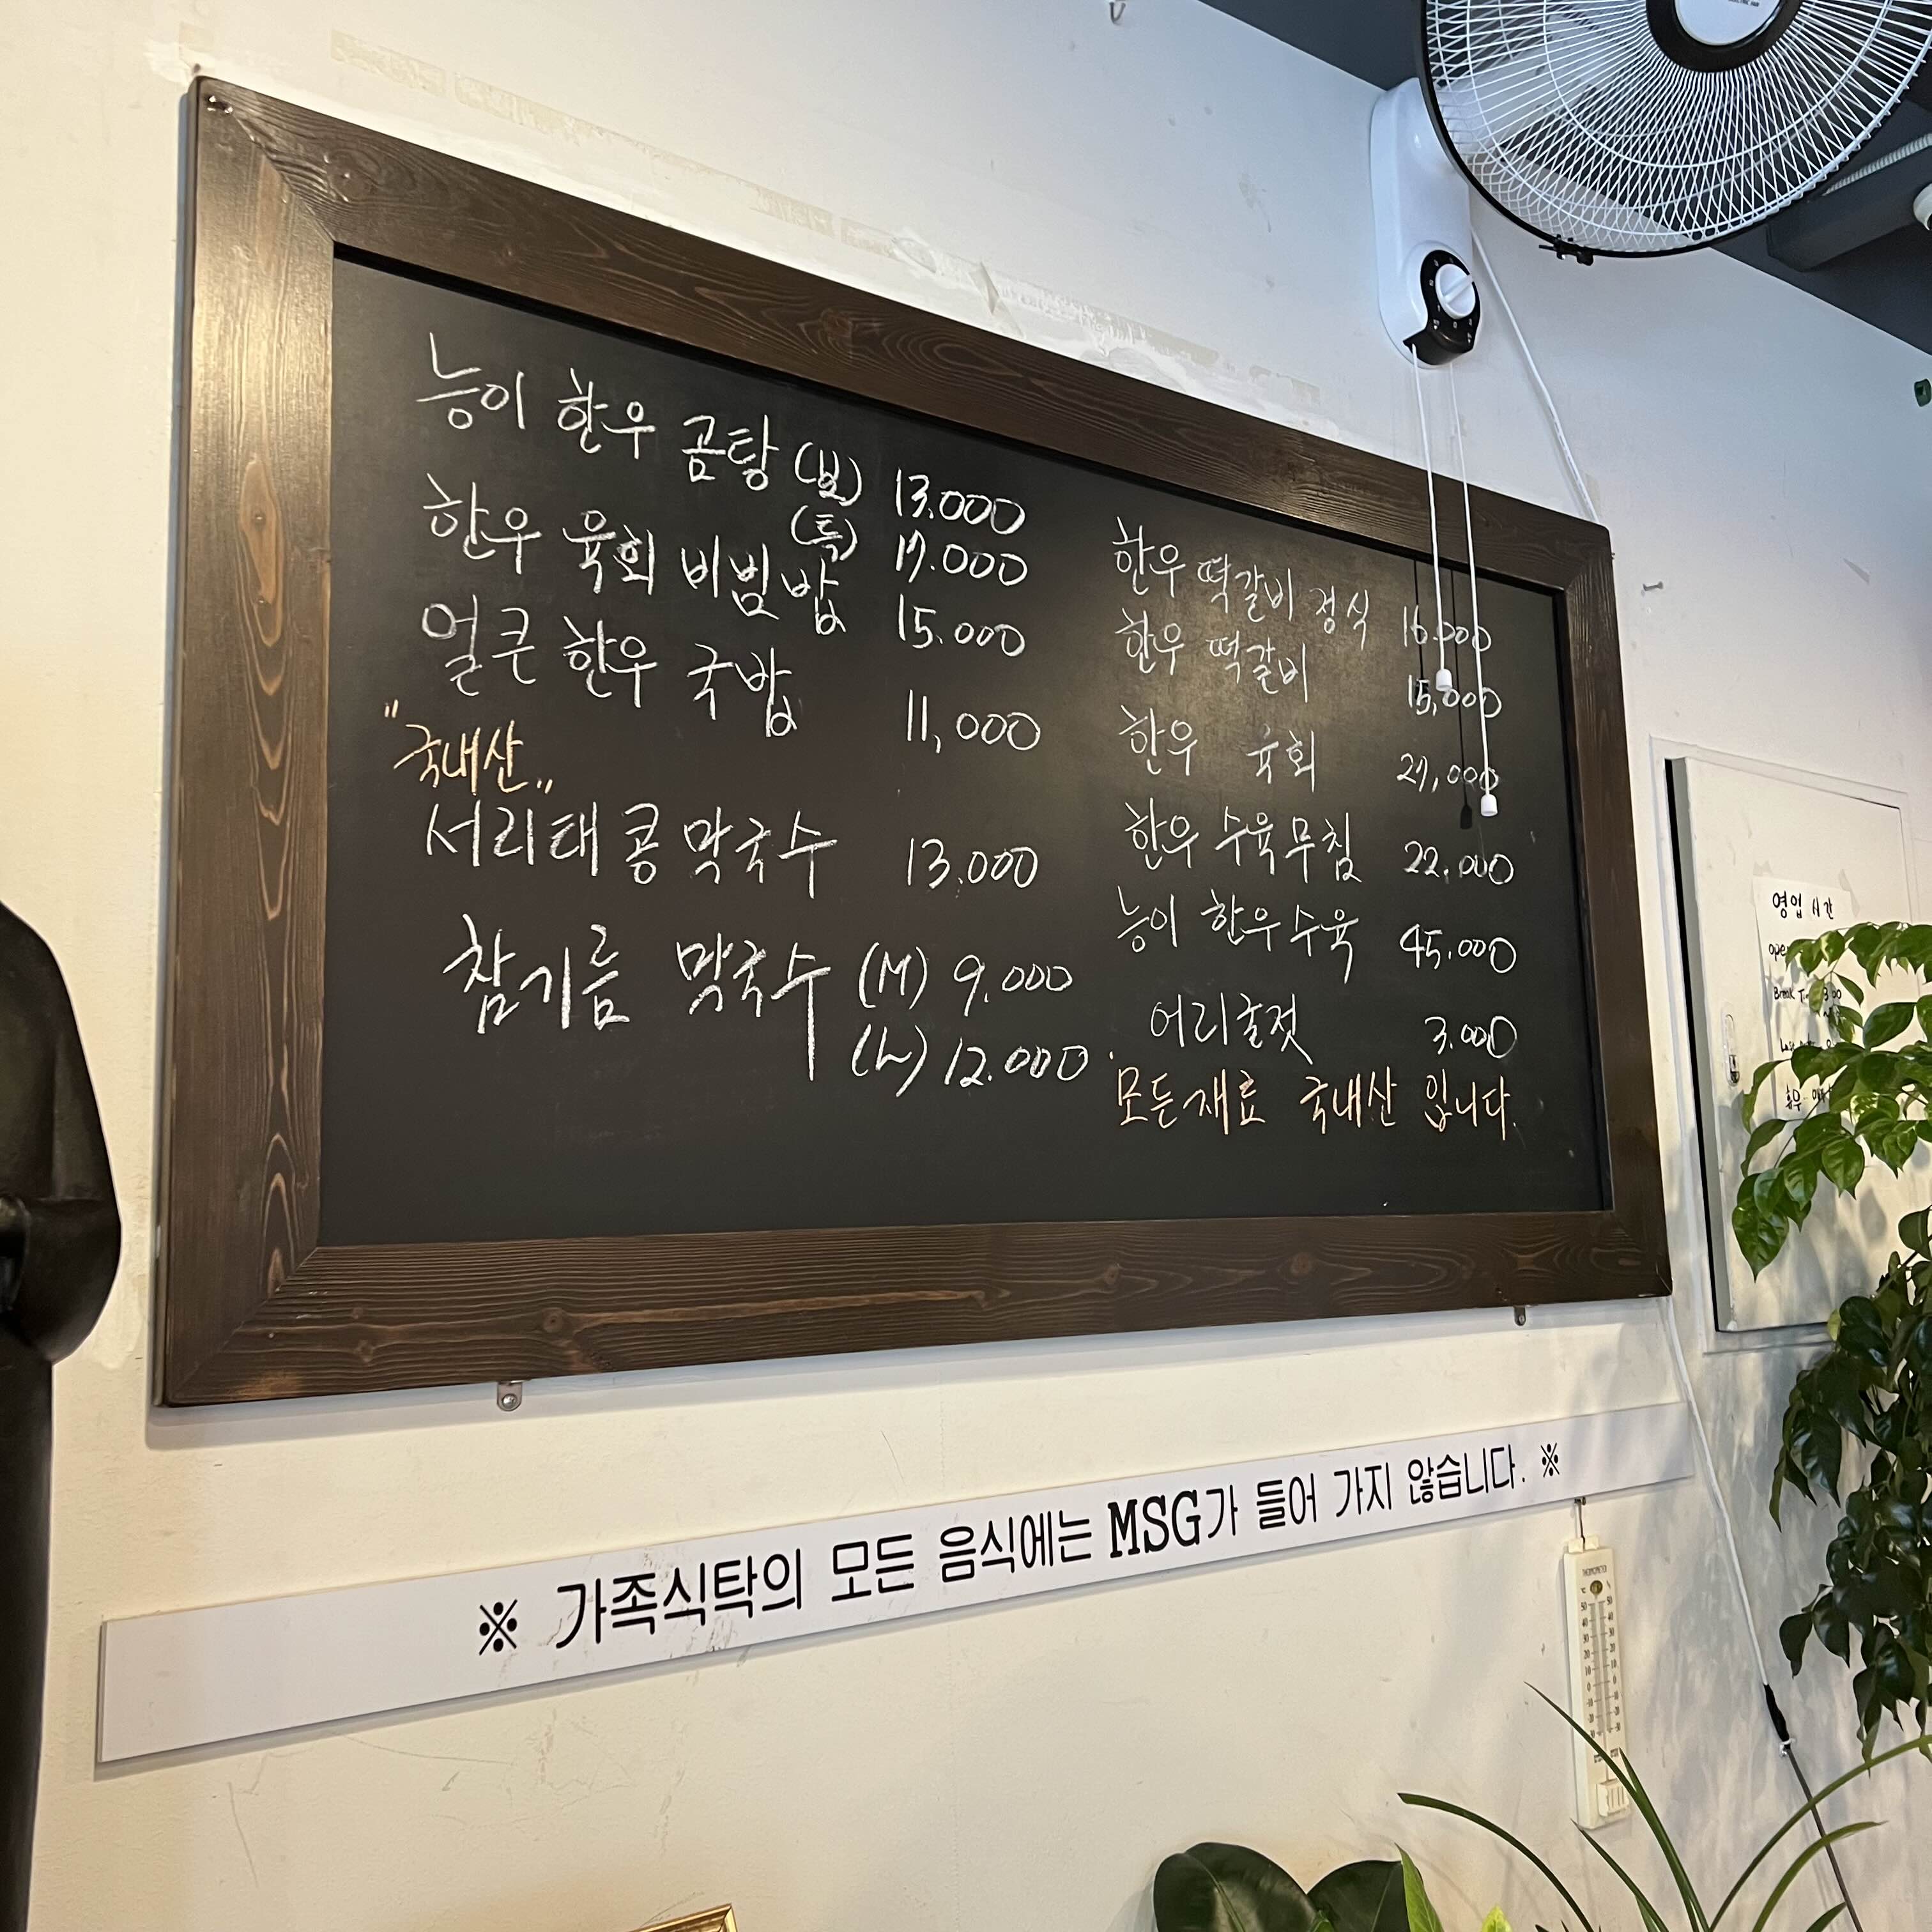 능이 한우 곰탕 (보) 13.000
(특) 17.000
한우 육회 비빔밥 15.000
얼큰 한우 국밥 11,000
"국내산"
서리태 콩 막국수 13.000
참기름 막국수 (M) 9.000
(L) 12.000
한우 떡갈비 정식 16.000
한우 떡갈비 15,000
한우 육회 27,000
한우 수육무침 22.000
능이 한우수육 45.000
어리굴젓 3.000
모든재료 국내산 입니다.
※ 가족식탁의 모든 음식에는 MSG가 들어 가지 않습니다. ※
영업 시간
Break